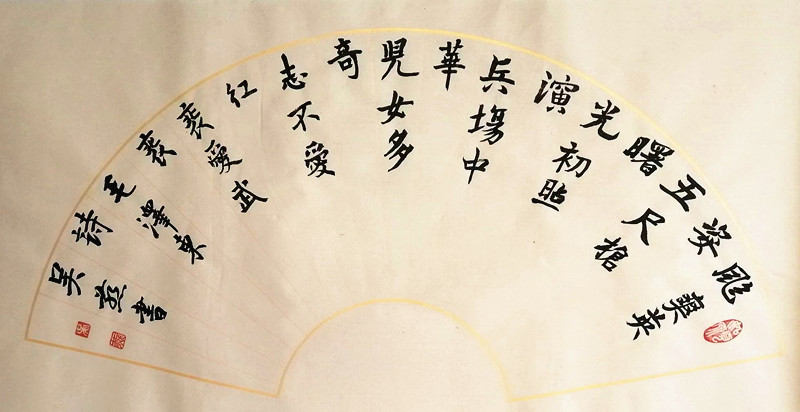 颯爽英
姿
五尺槍
曙
光初照
演
兵塲中
華
兒女多
奇
志不愛
紅
裝愛武
裝
毛澤東
詩
吳書